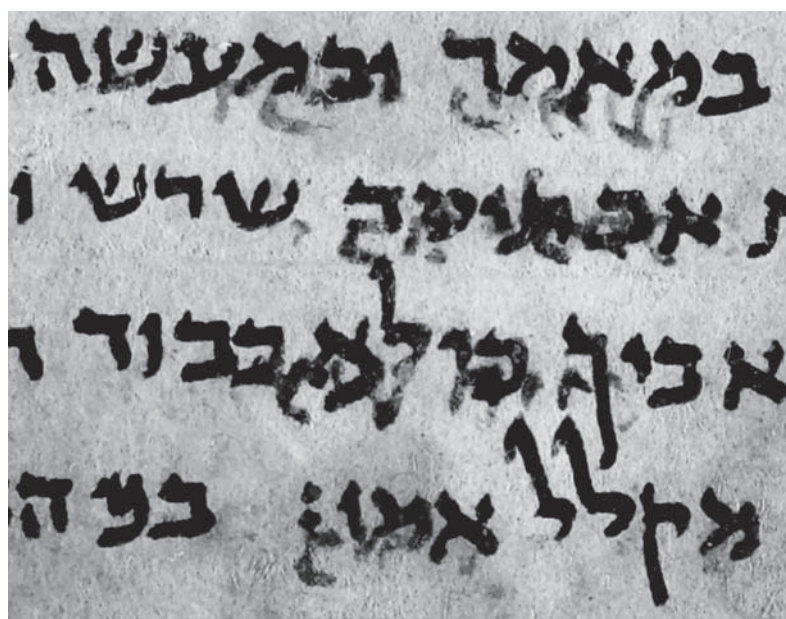 במאמר ובמעשה
ת אב תיסד שרש ו
אביך כי לא כבוד ה
מקלל אמו: בני ה